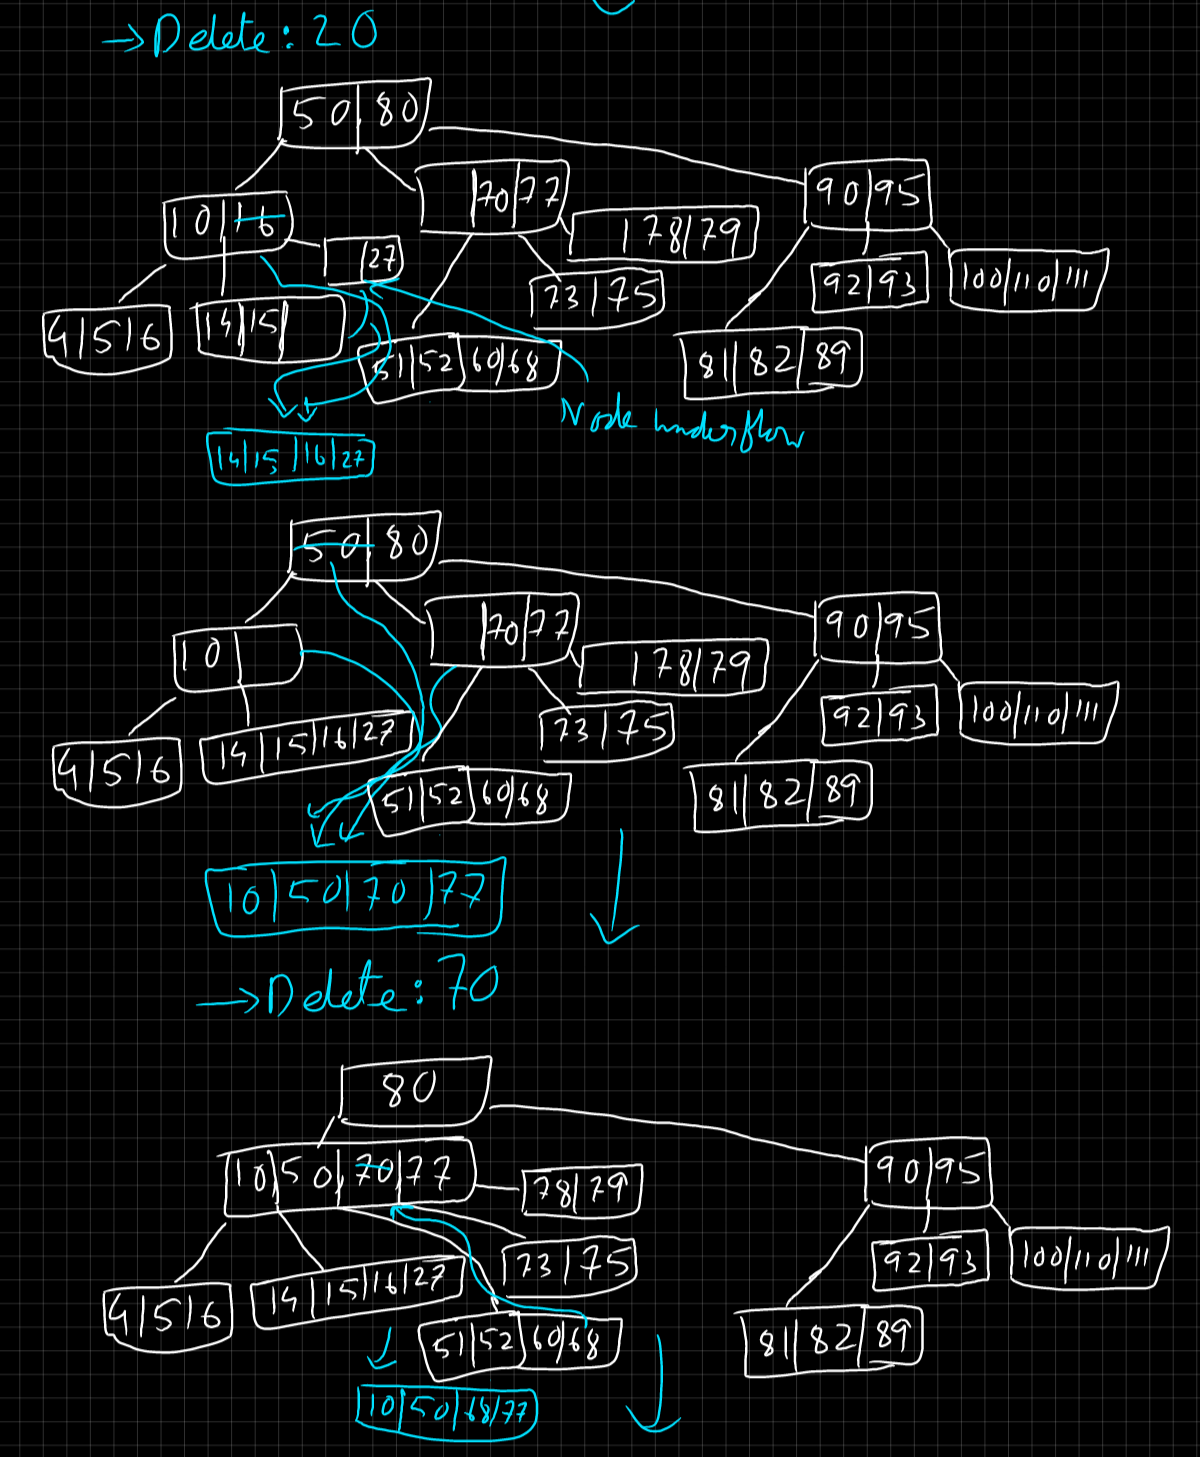 →Delete: 20
50|80
10|16
|70|77
90|95
|27
|78|79
4|5|6
14|15|
51|52|60|68
73|75
81|82|89
92|93
100|110|111
Node underflow
14|15|16|27
50|80
10|
|70|77
90|95
|78|79
4|5|6
14|15|16|27
51|52|60|68
73|75
81|82|89
92|93
100|110|111
10|50|70|77
→Delete: 70
80
10|50|70|77
90|95
78|79
4|5|6
14|15|16|27
51|52|60|68
73|75
81|82|89
92|93
100|110|111
10|50|68|77